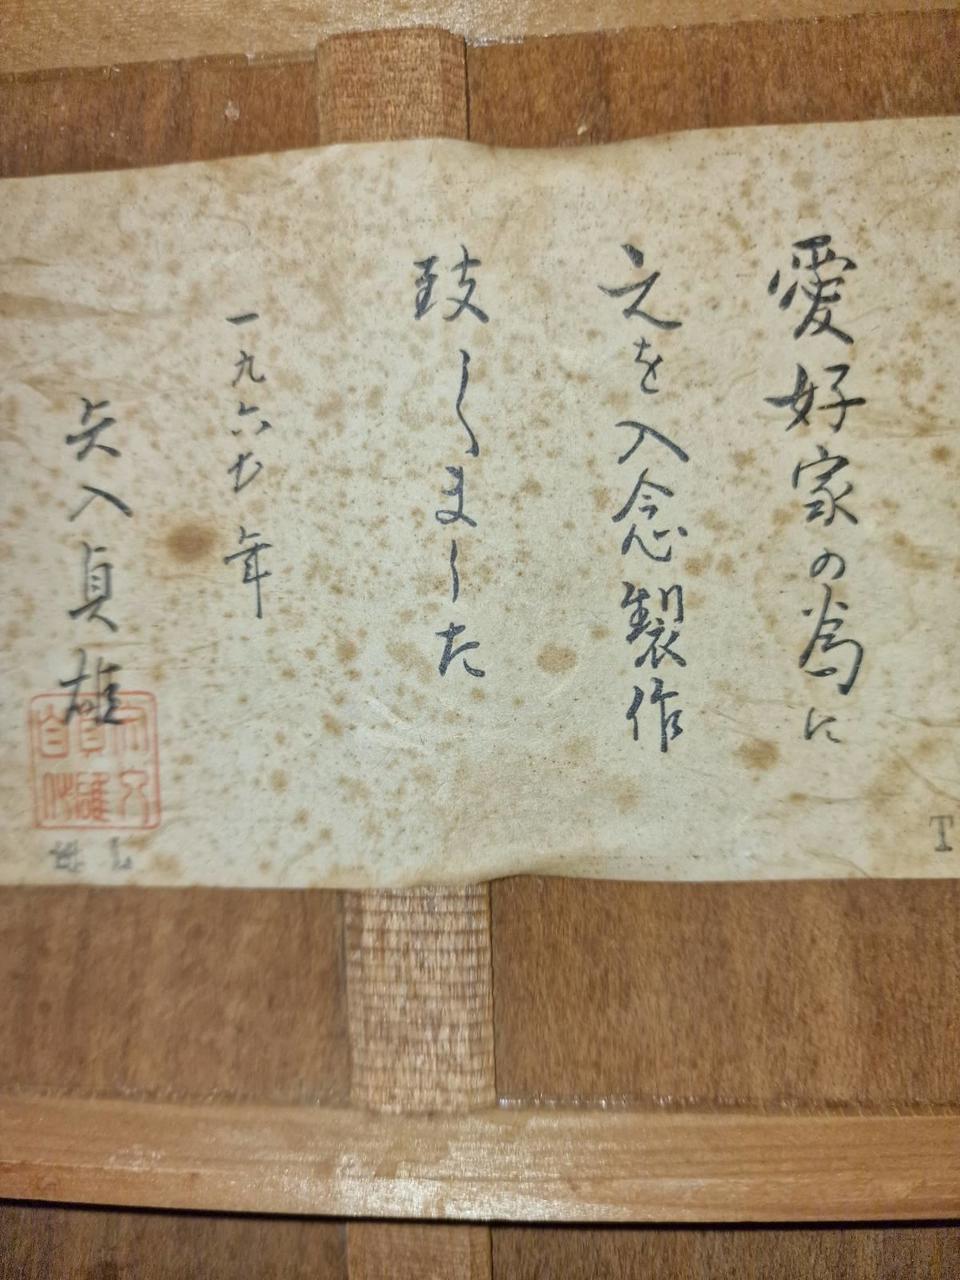 愛好家の為に
之を入念製作
致しました
一九六七年
矢入貞雄
T